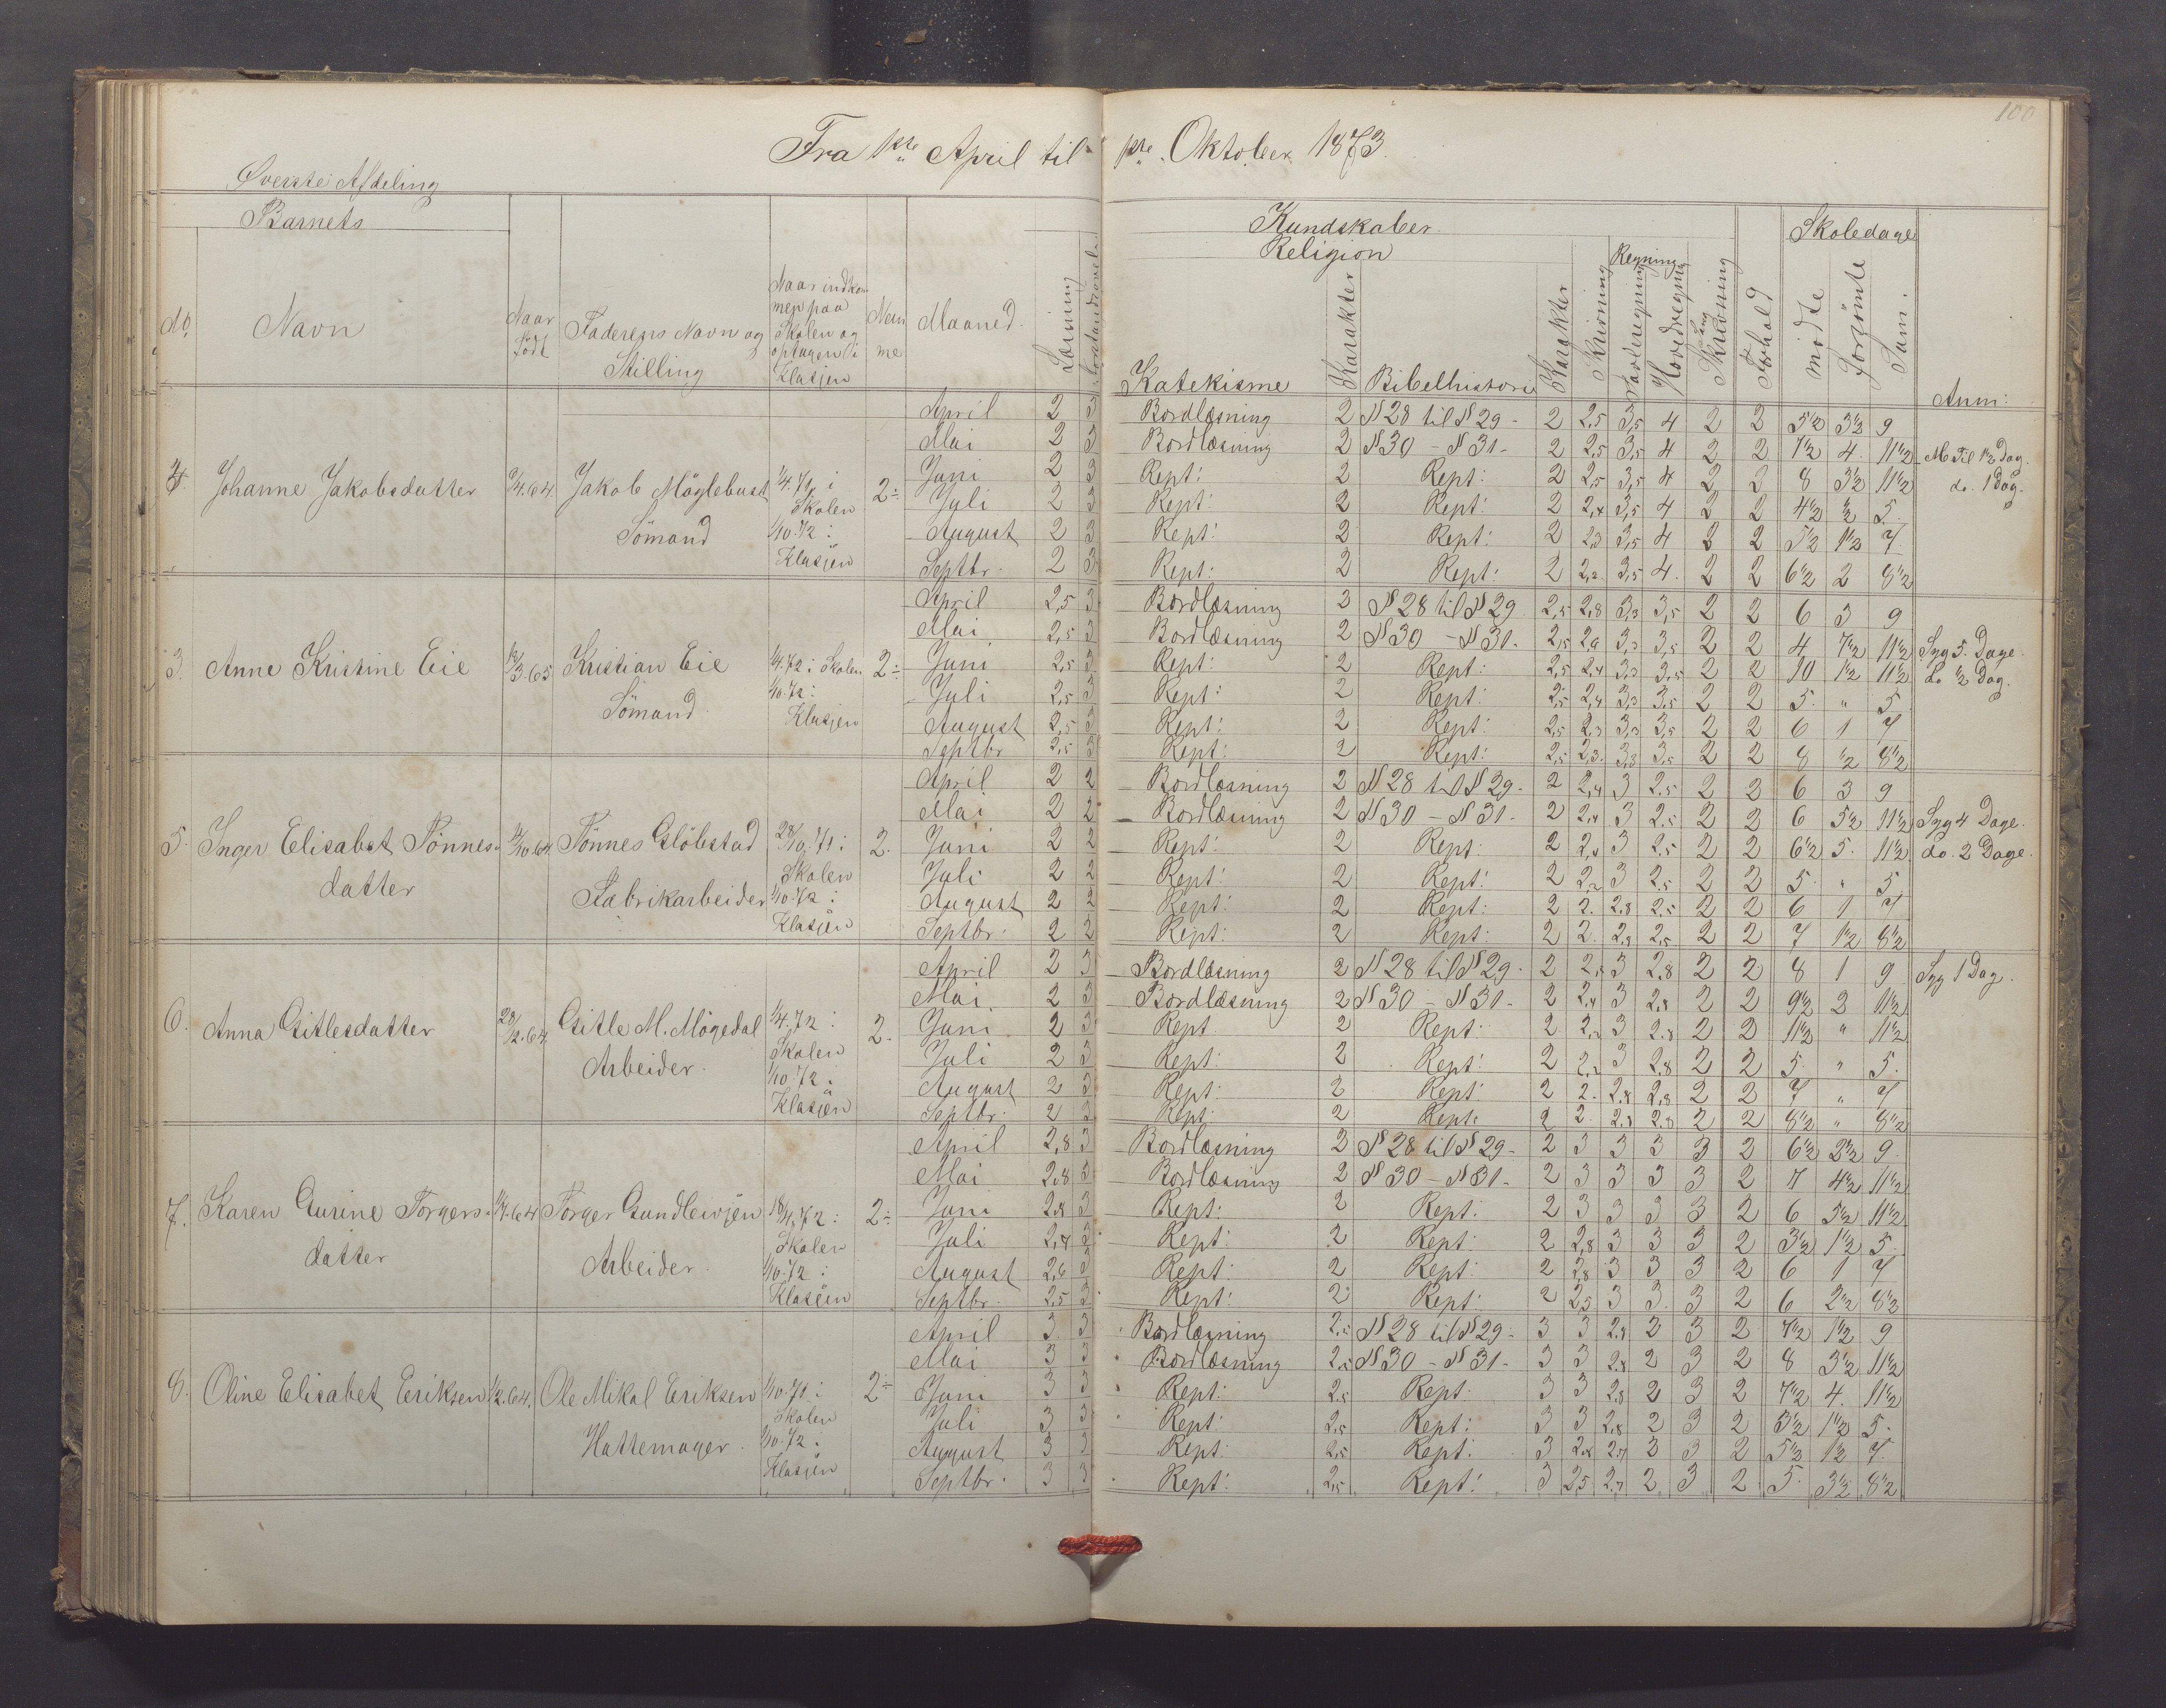 100
Fra 1ste April til 1ste Oktober 1873.
Øverste Afdeling
Barnets
Kundskaber
Skoledage
Religion
Regning
No. Navn Naar Født Faderens Navn og Stilling Naar indkommen paa Skolen og optagen i Klassen Maaned Læsning Katekisme Karakter Bibelhistorie Karakter Skrivning Tavleregning Hovedregning Sang Forhold mødte Forsømte Sum. Anm:
April 2 3 Bordlæsning 2 § 28 til § 29 - 2 2,5 3,5 4 2 2 5½ 3½ 9
Mai 2 3 Bordlæsning 2 § 30 - § 31 - 2 2,5 3,5 4 2 2 7½ 4. 11½
4. Johanne Jakobsdatter Jakob Møglebust Sømand 1/4.71 i Skolen 1/10.72 i Klassen 2÷
Juni 2 3 Rept: 2 Rept: 2 2,5 3,5 4 2 2 8 3½ 11½ do. 1 Dag.
Juli 2 3 Rept: 2 Rept: 2 2,4 3,5 4 2 2 4½ ½ 5.
August 2 3 Rept: 2 Rept: 2 2,3 3,5 4 2 2 5½ 1½ 7
Septbr. 2 3 Rept: 2 Rept: 2 2,2 3,5 4. 2 2 6½ 2 8½
April 2,5 3 Bordlæsning 2 § 28 til § 29 2,5 2,8 3,3 3,5 2 2 6 3 9
Mai 2,5 3 Bordlæsning 2 § 30 - § 31. 2,5 2,6 3,3 3,5 2 2 4 7½ 11½ Syg 5 Dage.
3. Anne Kristine Eie Kristian Eie Sømand 1/4.72 i Skolen 1/10.72 i Klassen 2÷
Juni 2,5 3 Rept: 2 Rept: 2,5 2,4 3,3 3,5 2 2 10 1½ 11½ do ½ Dag.
Juli 2,5 3 Rept: 2 Rept: 2,5 2,4 3,3 3,5 2 2 5. " 5
August 2,5 3 Rept: 2 Rept: 2,5 2,3 3,3 3,5 2 2 6 1 7
Septbr 2,5 3 Rept: 2 Rept: 2,5 2,3. 3,3 3,5 2 2 8 ½ 8½
April 2 2 Bordlæsning 2 § 28 til § 29 - 2 2,4 3 2,5 2 2 6 3 9
Mai 2 2 Bordlæsning 2 § 30 - § 31 - 2 2,4 3 2,5 2 2 6 5½ 11½ Syg 4 Dage.
5. Inger Elisabet Tønnesdatter Tønnes Fabrikarbeider 28/10.71 i Skolen 1/10.72 i Klassen 2.
Juni 2 2 Rept: 2 Rept: 2 3 2,5 2 2 6½ 5. 11½ do. 2 Dage.
Juli 2 2 Rept: 2 Rept: 2 2,2 3 2,5 2 2 5. " 5
August 2 2 Rept: 2 Rept: 2 2. 2,8 2,5 2 2 6 1 7
Septbr. 2 2 Rept: 2 Rept: 2 2. 2,8 2,5 2 2 7 1½ 8½
April 2 3 Bordlæsning 2 § 28 til § 29. 2 3 2,8 2 2 8 1 9 Syg 1 Dag.
Mai 2 3 Bordlæsning 2 § 30 - § 31 - 2 2,4 3 2,8 2 2 9½ 2 11½
6. Anna Gitlesdatter 28/2.64 Gitle M. Møgedal Arbeider. 1/4.72 i Skolen 1/10.72 i Klassen 2.
Juni 2 3 Rept 2 Rept: 2 2,2 3 2,8 2 2 11½ " 11½
Juli 2 3 Rept: 2 Rept: 2 2,2 3 2,8 2 2 5. " 5.
August 2 3 Rept: 2 Rept: 2 2. 2,8 2,8 2 2 7 " 7
Septbr. 2 3 Rept 2 Rept: 2 2. 2,8 2,8 2 2 8½ " 8½
April 2,8 3 Bordlæsning 2 § 28 til § 29 - 2 3 3 3 3 2 6½ 2½ 9.
Mai 2,8 3 Bordlæsning 2 § 30 - § 31 - 2 3 3 3 3 2 7 4½ 11½
7. Karen Gurine Torgersdatter Torger Gundleivsen Arbeider. 18/4.72 i Skolen 1/10.72 i Klassen 2÷
Juni 2,8 3 Rept: 2 Rept: 2 3 3 3 3 2 6 5½ 11½
Juli 2,7 3 Rept: 2 Rept: 2 2,8 3 3 3 2 3½ 1½ 5.
August 2,6 3 Rept: 2 Rept: 2 2,8 3 3 3 2 6 1 7
Septbr. 2,5 3 Rept: 2 Rept: 2 2,5 3 3. 3 2 6 2½ 8½
April 3 3 Bordlæsning 2,5 § 28 til § 29 - 3 3 2,8 2 3 2 7½ 1½ 9
Mai 3 3 Bordlæsning 2,5 § 30 - § 31 - 3 3 2,8 2 3 2 8 3½ 11½
8. Oline Elisabet Eriksen 1/2.64. Ole Mikal Eriksen Hattemager. 1/10.71 i Skolen 1/10.72 i Klassen 2÷
Juni 3 3 Rept: 2,5 Rept: 3 3 2,8 2 3 2 7½ 4. 11½
Juli 3 3 Rept: 2,5 Rept: 3 3 2,8 2 3 2 3½ 1½ 5.
August 3 3 Rept: 2,5 Rept: 3 2,8 2,7 2 3 2 5½ 1½ 7.
Septbr. 3 3 Rept: 2,5 Rept: 3 2,5 2,7 2 3 2 5. 3½ 8½